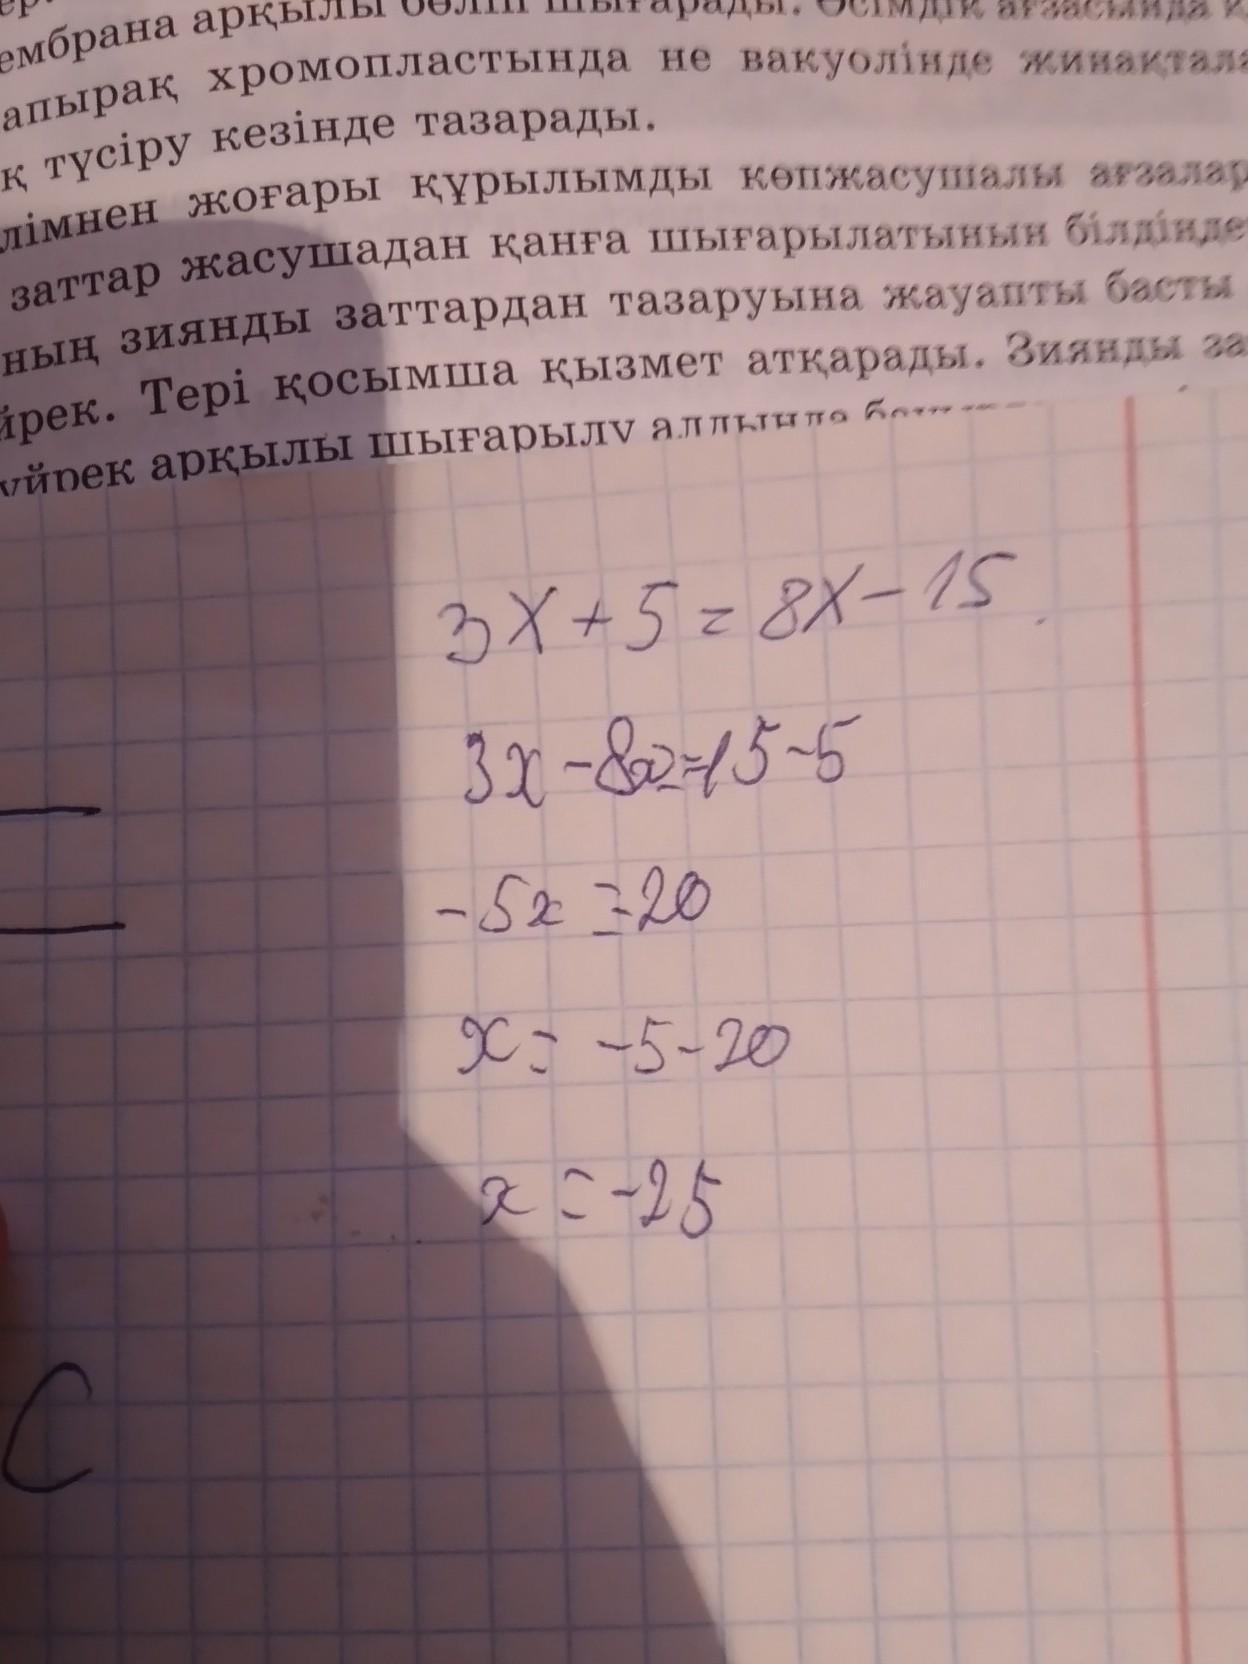 мембрана арқылы бөліп шығарады. Өсімдік ағзасында
апырақ хромопластында не вакуолінде жинақтала
қ түсіру кезінде тазарады.
лімнен жоғары құрылымды көпжасушалы ағзалар
заттар жасушадан қанға шығарылатынын білдіңде
ның зиянды заттардан тазаруына жауапты басты
йрек. Тері қосымша қызмет атқарады. Зиянды за
үйрек арқылы шығарылу алдында
3x + 5 = 8x - 15
3x - 8x = -15 - 5
-5x = -20
x = -5 - 20
x = -25
C